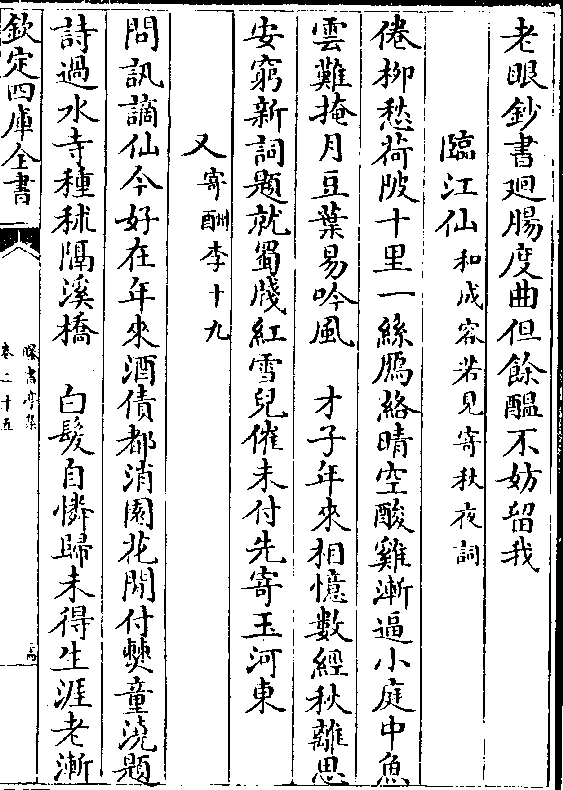 老眼鈔書廻腸度曲但餘醞不妨留我
臨江仙 和成容若見寄秋夜詞
倦柳愁荷陂十里一絲鴈絡晴空酸雞漸逼小庭中魚
雲難掩月豆葉易吟風 才子年來相憶數經秋離思
安窮新詞題就蜀牋紅雪兒催未付先寄玉河東
又 寄酬李十九
問訊謫仙今好在年來酒債都消園花閒付㸑童澆題
詩過水寺種秫隔溪橋 白髮自憐歸未得生涯老漸
欽定四庫全書
曝書亭集
卷二十五